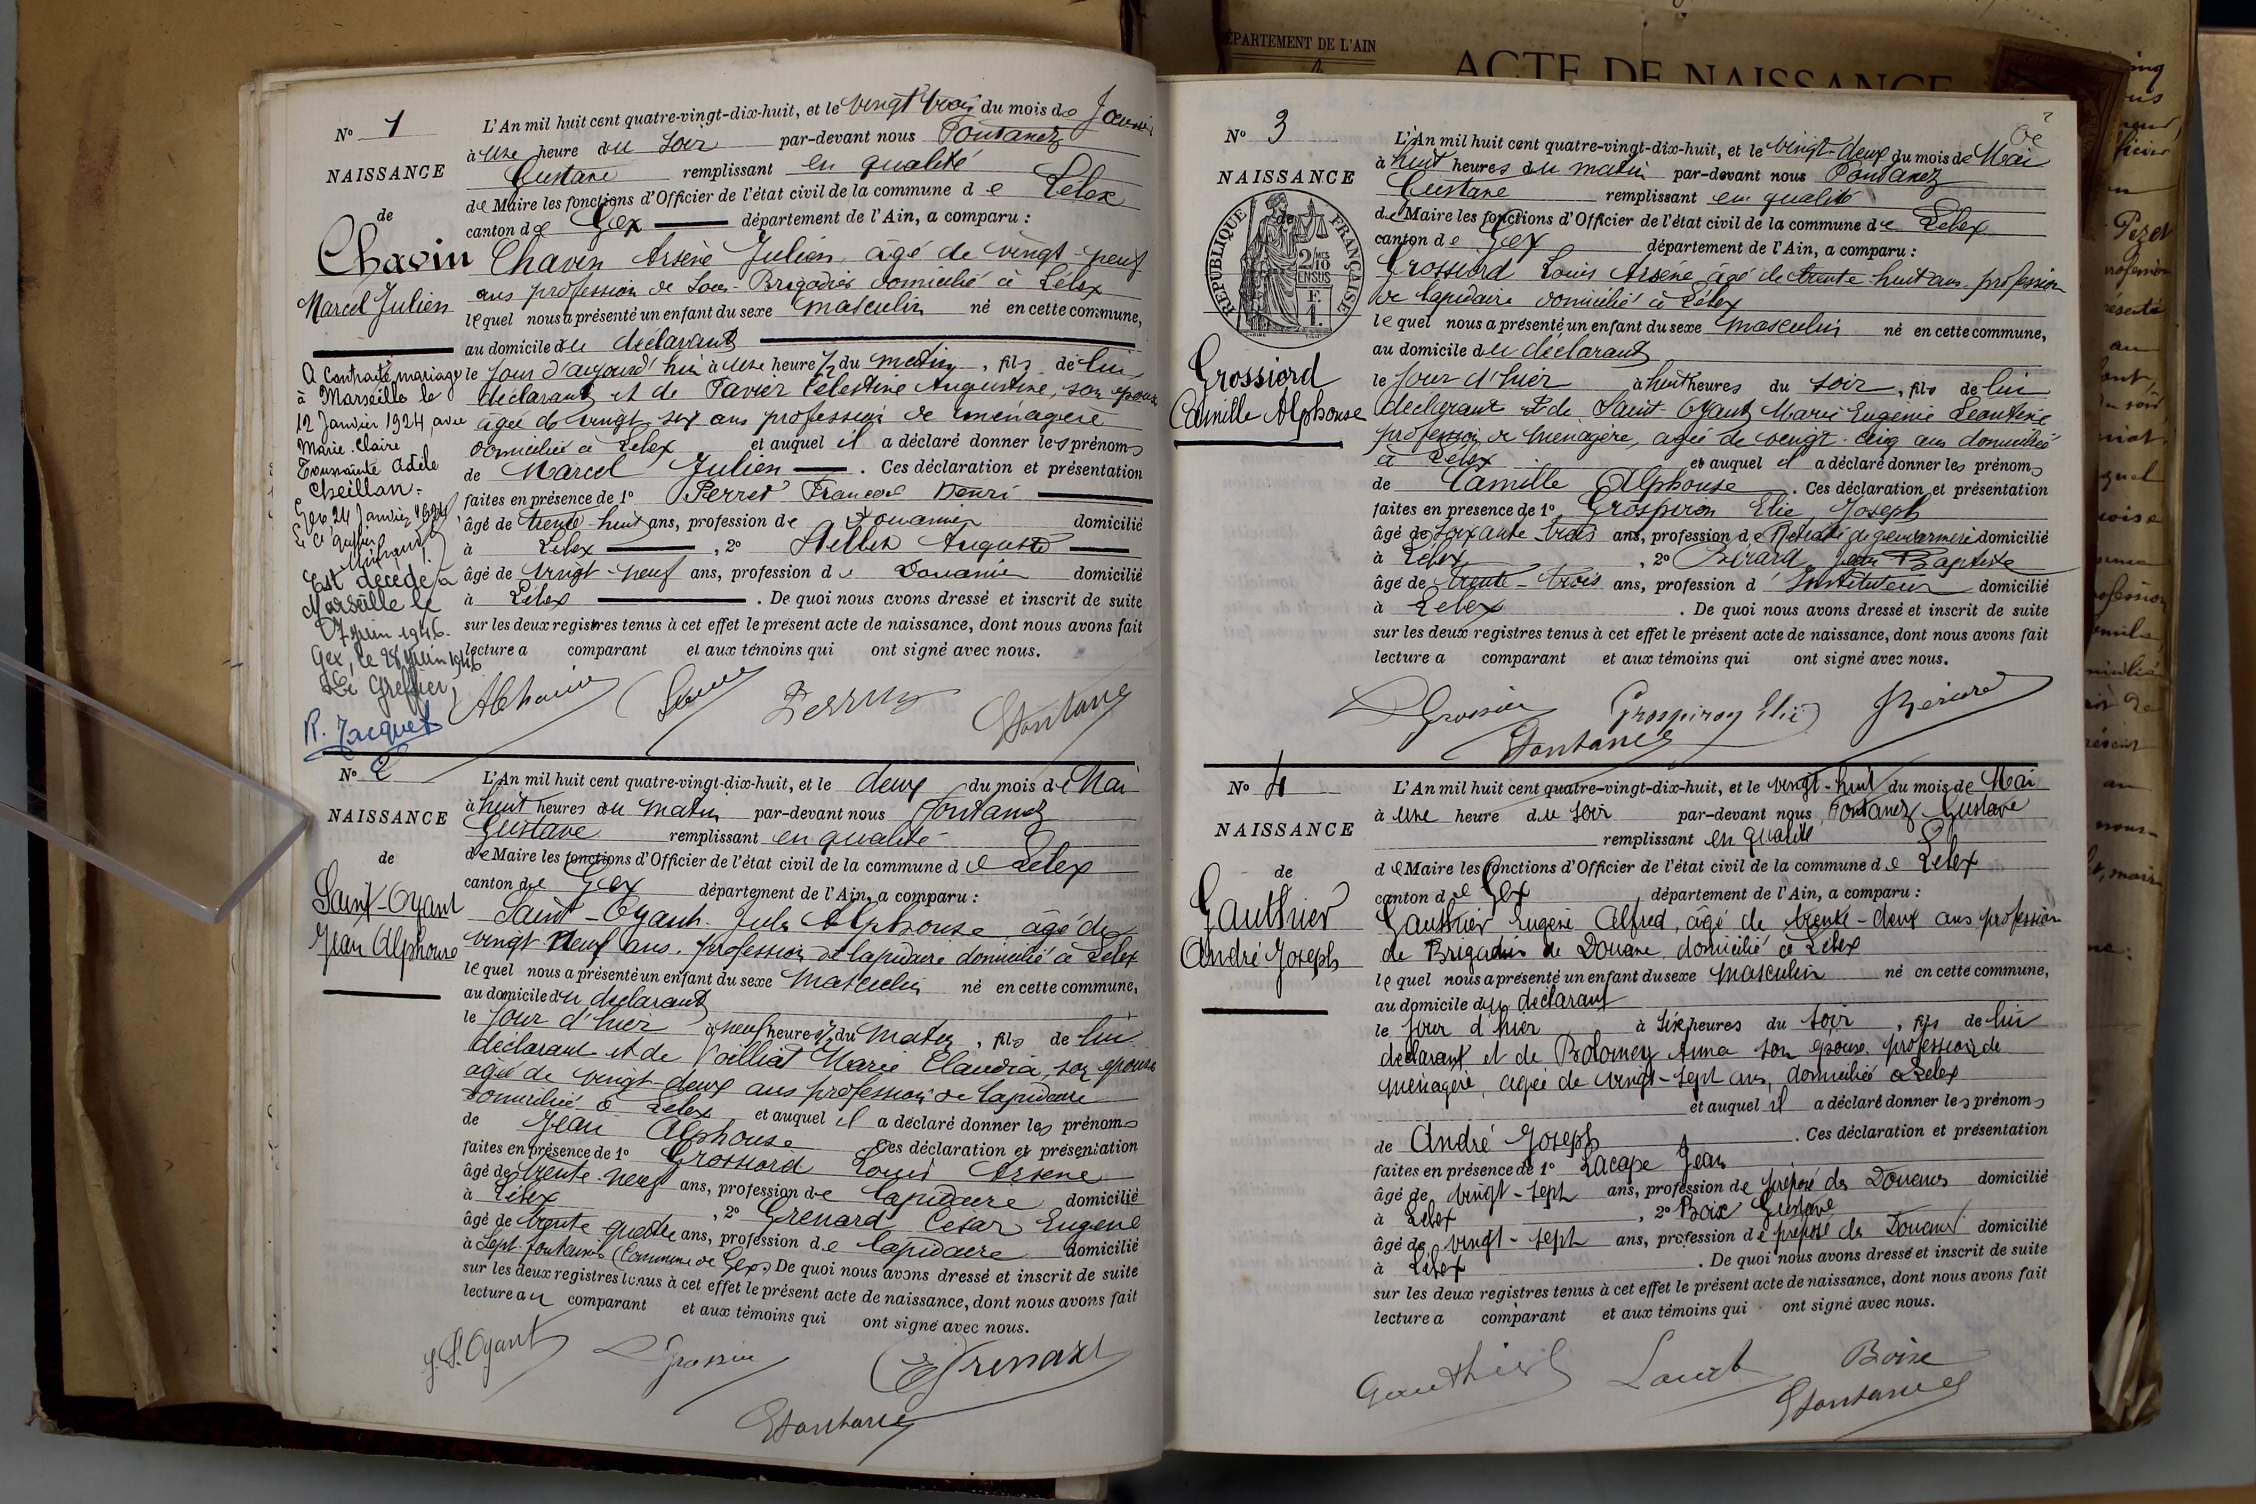 N° 1
NAISSANCE
de
Chavin
Marcel Julien
A contracté mariage
à Marseille le
12 Janvier 1924, avec
Marie-Claire
Toussainte Adèle
Cheillan.
Gex 24 Janvier 1924
Est décédé à
Marseille le
7 Juin 1946.
Gex, le 28 Juin 1946
Le Greffier,
R. Jacquet
L'An mil huit cent quatre-vingt-dix-huit, et le vingt trois du mois de Janvier
à une heure du soir par-devant nous Fontanez
Gustave remplissant en qualité
de Maire les fonctions d'Officier de l'état civil de la commune de Lélex
canton de Gex département de l'Ain, a comparu :
Chavin Arsène Julien, âgé de vingt-neuf
ans profession de Sous-Brigadier domicilié à Lélex
lequel nous a présenté un enfant du sexe masculin né en cette commune,
au domicile du déclarant
le jour d'aujourd'hui à une heure ½ du matin, fils de lui
déclarant et de Tavier Célestine Augustine, son épouse
âgée de vingt-six ans profession de ménagère
domiciliée à Lélex et auquel il a déclaré donner les prénoms
de Marcel Julien. Ces déclaration et présentation
faites en présence de 1° Perret François Henri
âgé de trente-huit ans, profession de Douanier domicilié
à Lélex, 2° Auguste
âgé de vingt-neuf ans, profession de Douanier domicilié
à Lélex. De quoi nous avons dressé et inscrit de suite
sur les deux registres tenus à cet effet le présent acte de naissance, dont nous avons fait
lecture a comparant et aux témoins qui ont signé avec nous.
AChavin Perret GFontanez
N° 2
NAISSANCE
de
Saint-Oyant
Jean Alphonse
L'An mil huit cent quatre-vingt-dix-huit, et le deux du mois de Mai
à huit heures du matin par-devant nous Fontanez
Gustave remplissant en qualité
de Maire les fonctions d'Officier de l'état civil de la commune de Lélex
canton de Gex département de l'Ain, a comparu :
Saint-Oyant Jules Alphonse âgé de
vingt neuf ans, profession de lapidaire domicilié à Lélex
lequel nous a présenté un enfant du sexe masculin né en cette commune,
au domicile du déclarant
le jour d'hier à neuf heures ½ du matin, fils de lui
déclarant et de Vailliat Marie Claudia, son épouse
âgée de vingt-deux ans profession de lapidaire
domiciliée à Lélex et auquel il a déclaré donner les prénoms
de Jean Alphonse Ces déclaration et présentation
faites en présence de 1° Grossiord Louis Arsène
âgé de trente-neuf ans, profession de lapidaire domicilié
à Lélex, 2° Grenard César Eugène
âgé de trente-quatre ans, profession de lapidaire domicilié
à Sept-fontaines (Commune de Gex) De quoi nous avons dressé et inscrit de suite
sur les deux registres tenus à cet effet le présent acte de naissance, dont nous avons fait
lecture au comparant et aux témoins qui ont signé avec nous.
J. St. Oyant L Grossior EGrenard
GFontanez
DÉPARTEMENT DE L'AIN
ACTE DE NAISSANCE
N° 3
NAISSANCE
de
RÉPUBLIQUE FRANÇAISE
2/10
EN SUS
F.
1.
Grossiord
Camille Alphonse
L'An mil huit cent quatre-vingt-dix-huit, et le vingt-deux du mois de Mai
à huit heures du matin par-devant nous Fontanez
Gustave remplissant en qualité
de Maire les fonctions d'Officier de l'état civil de la commune de Lélex
canton de Gex département de l'Ain, a comparu :
Grossiord Louis Arsène âgé de trente-huit ans profession
de lapidaire domicilié à Lélex
lequel nous a présenté un enfant du sexe masculin né en cette commune,
au domicile du déclarant
le jour d'hier à huit heures du soir, fils de lui
déclarant & de Saint-Oyant Marie Eugénie Léontine
profession de ménagère, âgée de vingt-cinq ans domiciliée
à Lélex et auquel il a déclaré donner les prénoms
de Camille Alphonse. Ces déclaration et présentation
faites en présence de 1° Grospiron Elie Joseph
âgé de soixante trois ans, profession de Retraité de gendarmerie domicilié
à Lélex, 2° Bérard Jean Baptiste
âgé de trente-trois ans, profession d'Instituteur domicilié
à Lélex. De quoi nous avons dressé et inscrit de suite
sur les deux registres tenus à cet effet le présent acte de naissance, dont nous avons fait
lecture a comparant et aux témoins qui ont signé avec nous.
L Grossior Grospiron Elie JBérard
GFontanez
N° 4
NAISSANCE
de
Gauthier
André Joseph
L'An mil huit cent quatre-vingt-dix-huit, et le vingt-huit du mois de Mai
à une heure du soir par-devant nous Fontanez Gustave
remplissant en qualité
de Maire les fonctions d'Officier de l'état civil de la commune de Lélex
canton de Gex département de l'Ain, a comparu :
Gauthier Eugène Alfred, âgé de trente-deux ans profession
de Brigadier de Douane domicilié à Lélex
lequel nous a présenté un enfant du sexe masculin né en cette commune,
au domicile du déclarant
le jour d'hier à six heures du soir, fils de lui
déclarant et de Bolomey Anna son épouse profession de
ménagère, âgée de vingt-sept ans, domiciliée à Lélex
et auquel il a déclaré donner les prénoms
de André Joseph. Ces déclaration et présentation
faites en présence de 1° Lacape Jean
âgé de vingt-sept ans, profession de préposé des Douanes domicilié
à Lélex, 2° Boix Gustave
âgé de vingt-sept ans, profession de préposé des Douanes domicilié
à Lélex. De quoi nous avons dressé et inscrit de suite
sur les deux registres tenus à cet effet le présent acte de naissance, dont nous avons fait
lecture a comparant et aux témoins qui ont signé avec nous.
Gauthier
GFontanez